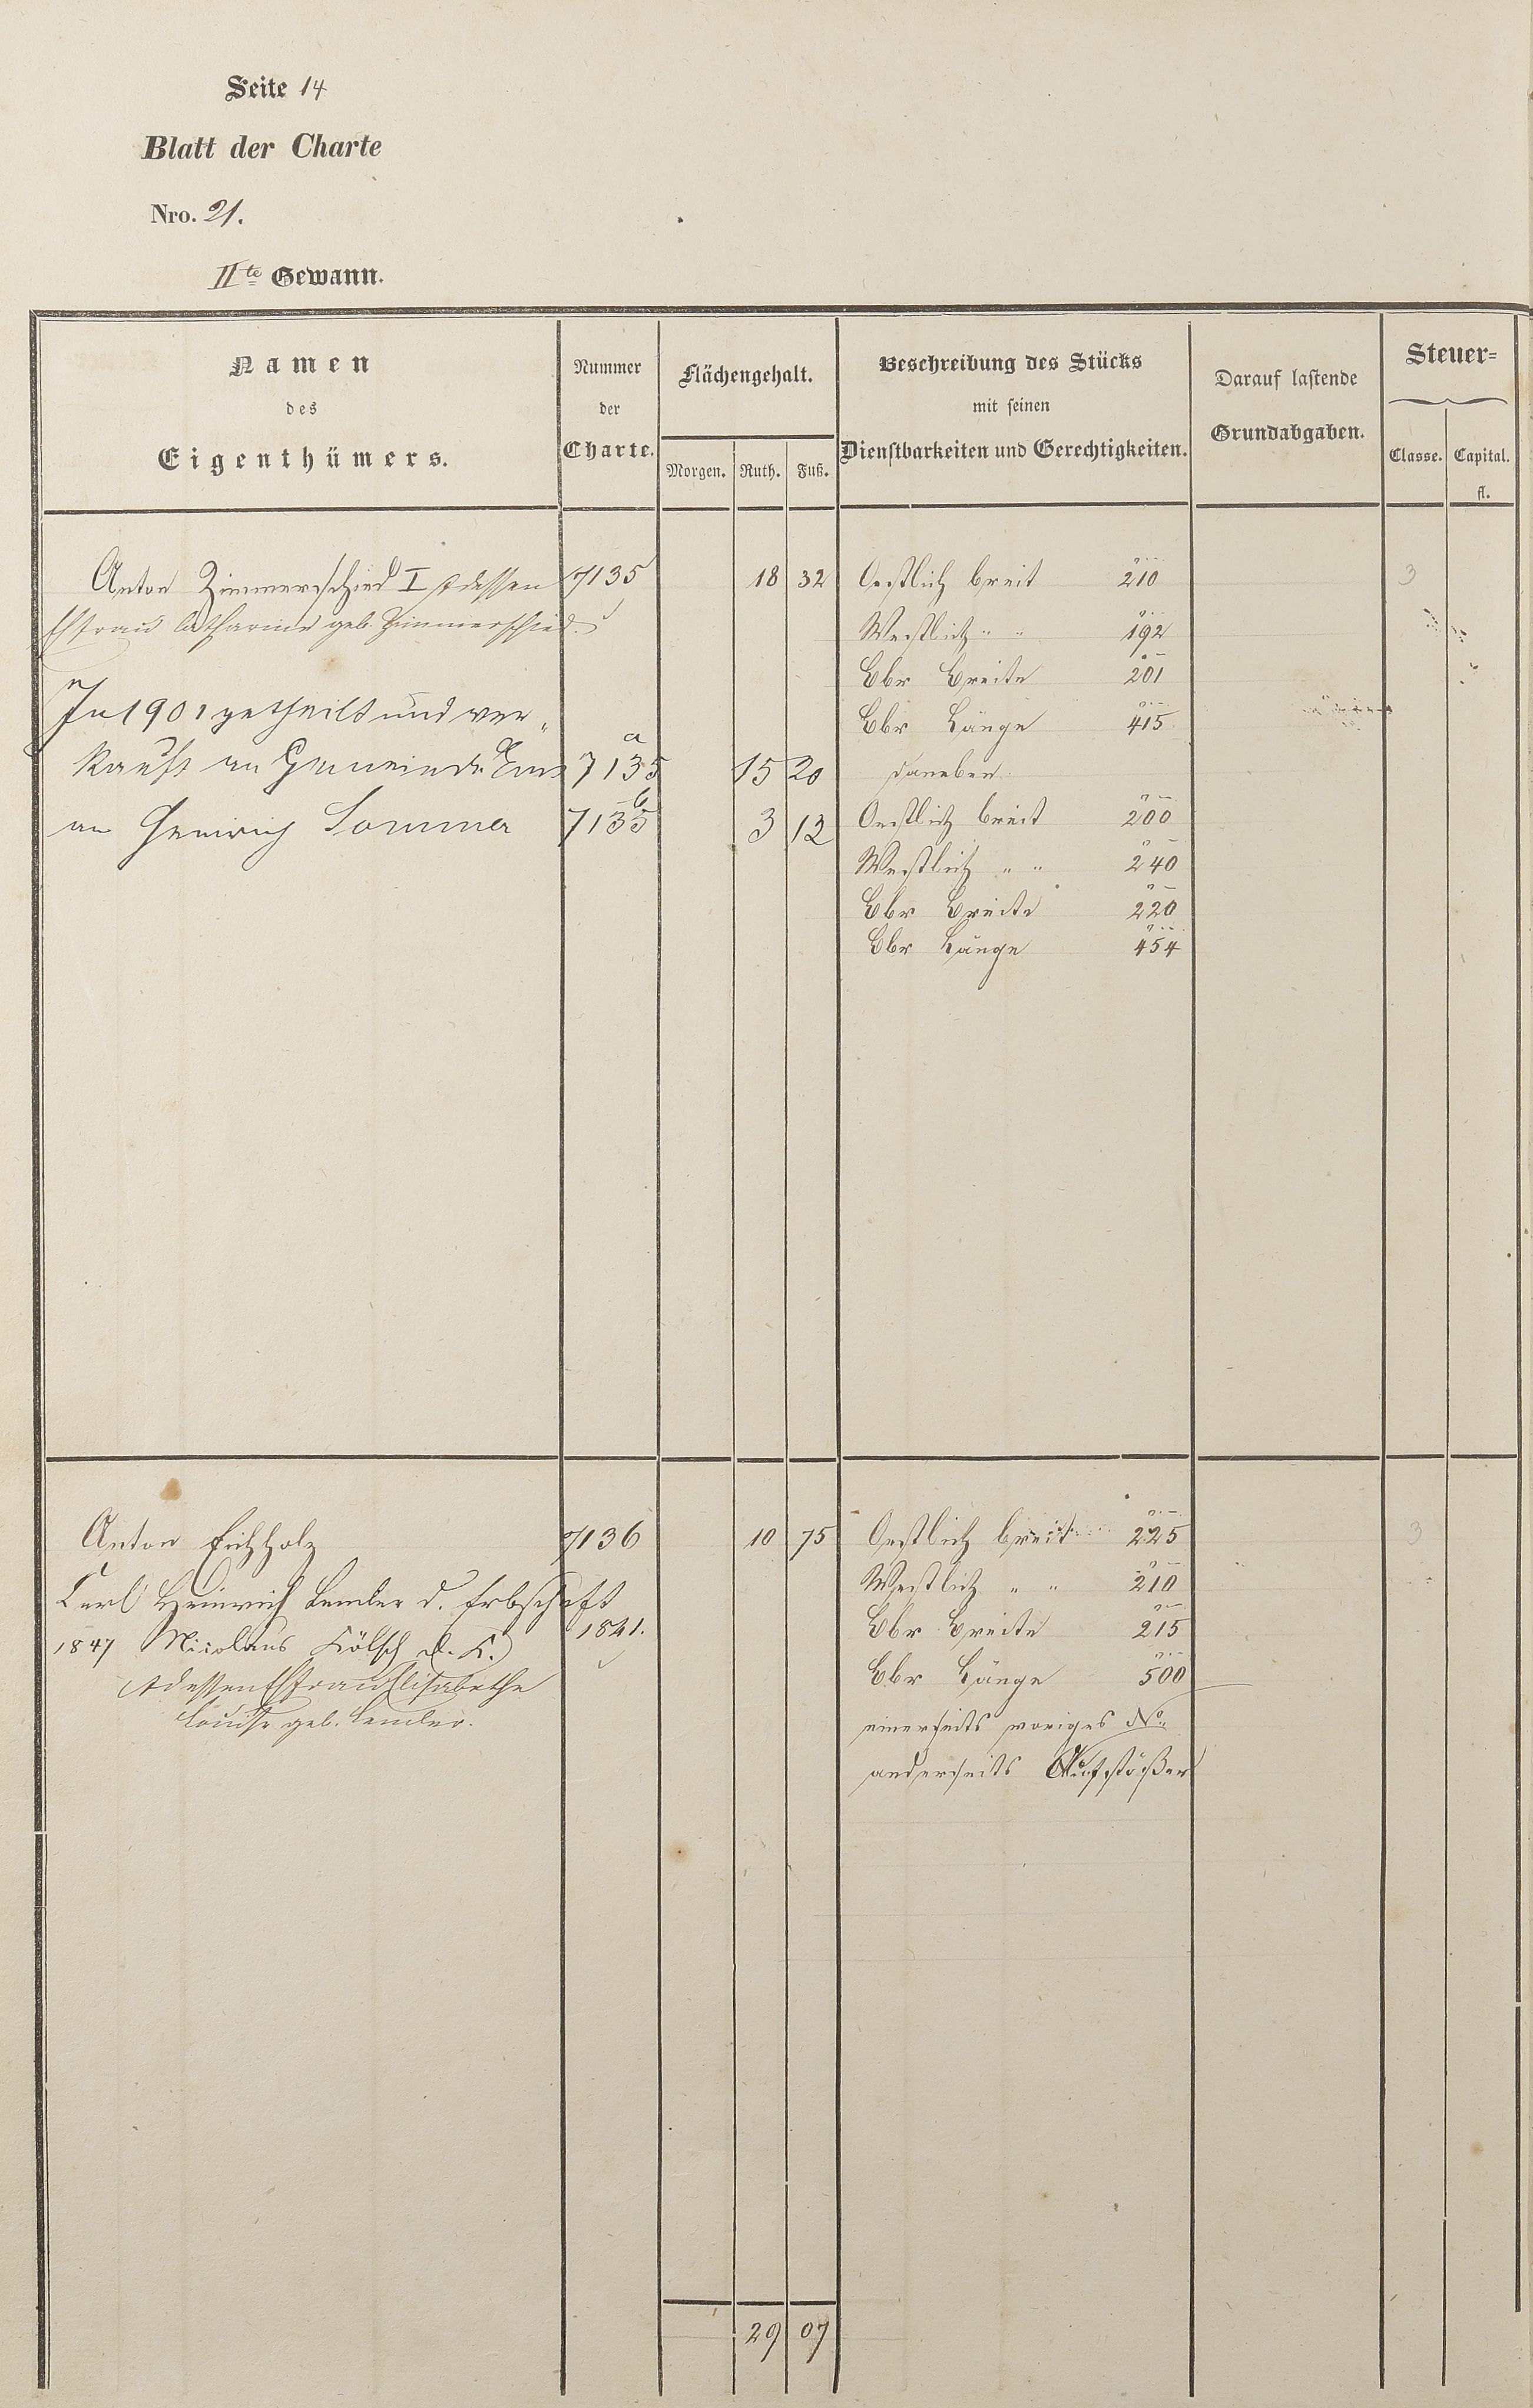 Seite 14
Blatt der Charte
Nro. 21.
IIte Gewann.
Namen des Eigenthümers.
Nummer der Charte.
Flächengehalt.
Morgen. Ruth. Fuß.
Beschreibung des Stücks mit seinen Dienstbarkeiten und Gerechtigkeiten.
Darauf lastende Grundabgaben.
Steuer=
Classe. Capital. fl.
Anton Zimmerschied I & dessen 7135 18 32 Oestlich breit 210 3
Ehfrau Catharine geb. Zimmerschied. Westlich " " 192
Ebr Breite 201
In 1901 getheilt und ver„ Ebr Länge 415
kauft an Gemeinde Ems 7135 a 15 20 daneben
an Heinrich Sommer 7135 b 3 12 Oestlich breit 200
Westlich " " 240
Ebr Breite 220
Ebr Länge 454
Anton Eichholz 7136 10 75 Oestlich breit 225 3
Carl Heinrich Lemler d. Erbschaft Westlich " " 210
1841. Ebr Breite 215
1847 Nicolaus Kölsch d. K. Ebr Länge 500
& dessen Ehfrau Elisabethe einerseits voriges No.
Louise geb. Lemler. anderseits Aufstößer
29 07